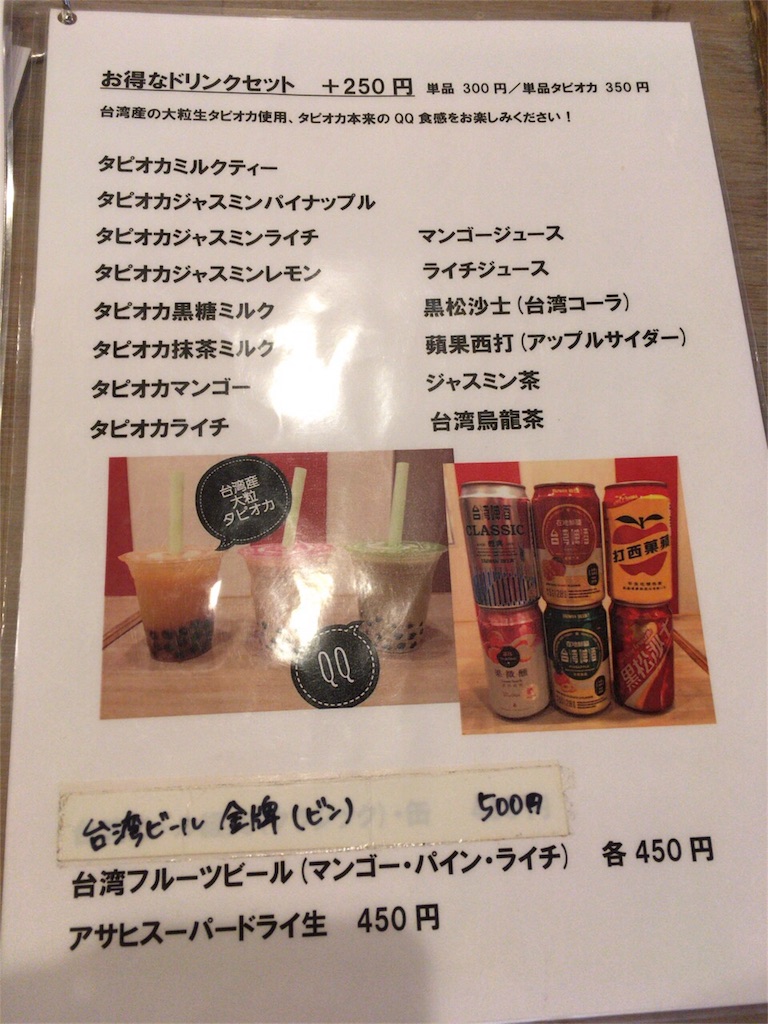 お得なドリンクセット ＋250円 単品 300円／単品タピオカ 350円
台湾産の大粒生タピオカ使用、タピオカ本来のQQ食感をお楽しみください！
タピオカミルクティー
タピオカジャスミンパイナップル
タピオカジャスミンライチ
タピオカジャスミンレモン
タピオカ黒糖ミルク
タピオカ抹茶ミルク
タピオカマンゴー
タピオカライチ
マンゴージュース
ライチジュース
黒松沙士（台湾コーラ）
蘋果西打（アップルサイダー）
ジャスミン茶
台湾烏龍茶
台湾産
大粒
タピオカ
QQ
CLASSIC
打西菓蘋
黒松沙士
台湾ビール 金牌（ビン） 500円
台湾フルーツビール（マンゴー・パイン・ライチ） 各450円
アサヒスーパードライ生 450円